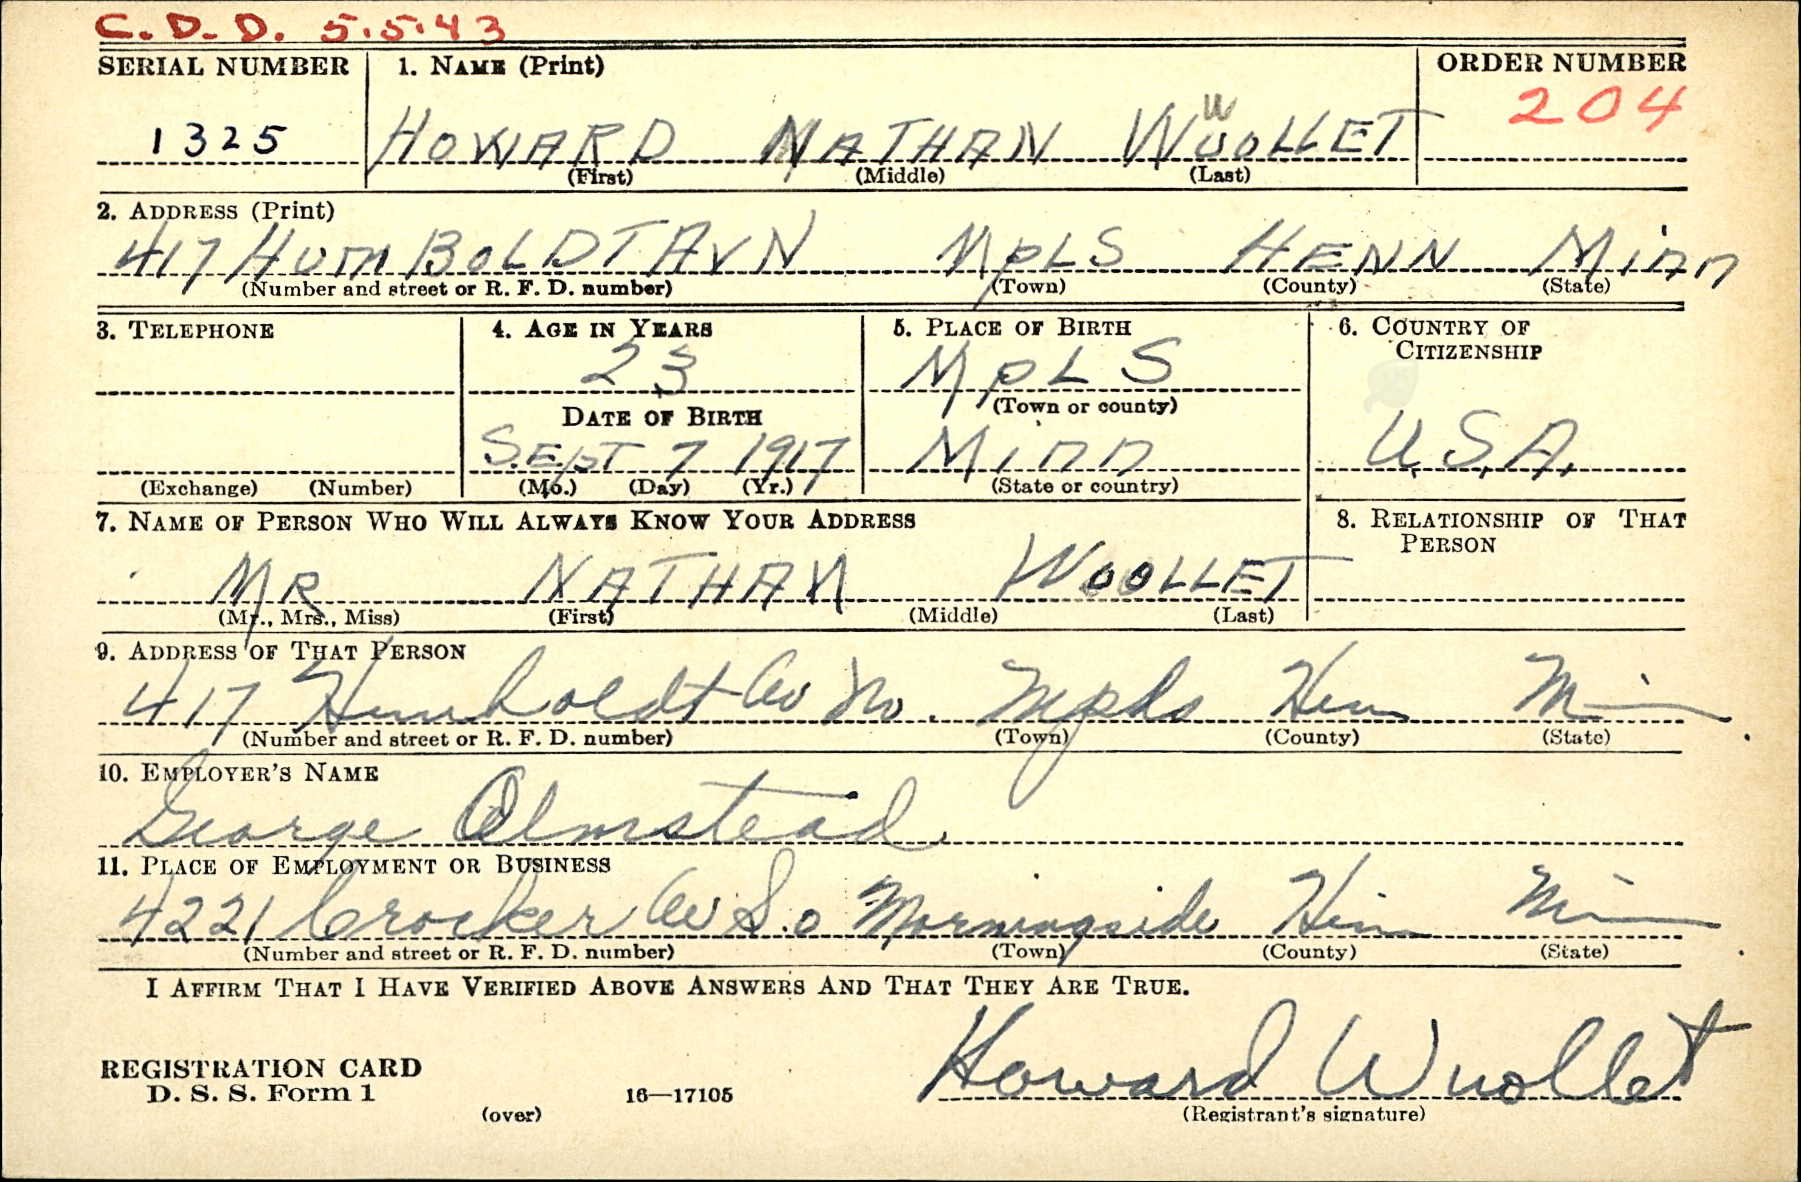 C. D. D. 5.5.43
SERIAL NUMBER 1. NAME (Print) ORDER NUMBER
1325 HOWARD NATHAN WUOLLET 204
(First) (Middle) (Last)
2. ADDRESS (Print)
417 HUMBOLDT AV N MPLS HENN MINN
(Number and street or R. F. D. number) (Town) (County) (State)
3. TELEPHONE 4. AGE IN YEARS 5. PLACE OF BIRTH 6. COUNTRY OF
CITIZENSHIP
23 MPLS
DATE OF BIRTH (Town or county)
SEPT 7 1917 MINN U.S.A.
(Exchange) (Number) (Mo.) (Day) (Yr.) (State or country)
7. NAME OF PERSON WHO WILL ALWAYS KNOW YOUR ADDRESS 8. RELATIONSHIP OF THAT
PERSON
MR NATHAN WUOLLET
(Mr., Mrs., Miss) (First) (Middle) (Last)
9. ADDRESS OF THAT PERSON
417 Humboldt Av No. Mpls Hen Minn
(Number and street or R. F. D. number) (Town) (County) (State)
10. EMPLOYER'S NAME
George Olmstead
11. PLACE OF EMPLOYMENT OR BUSINESS
4221 Crocker Av So Morningside Henn Minn
(Number and street or R. F. D. number) (Town) (County) (State)
I AFFIRM THAT I HAVE VERIFIED ABOVE ANSWERS AND THAT THEY ARE TRUE.
REGISTRATION CARD Howard Wuollet
D. S. S. Form 1 16—17105
(over) (Registrant's signature)